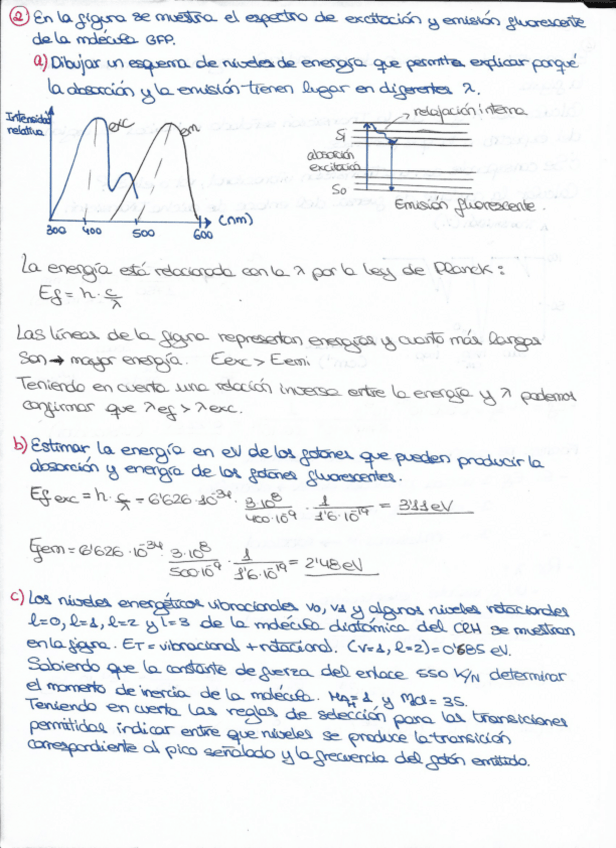 ② En la figura se muestra el espectro de excitación y emisión fluorescente
de la molécula GFP.
a) Dibujar un esquema de niveles de energía que permita explicar porqué
la absorción y la emisión tienen lugar en diferentes λ.
Intensidad
relativa
exc
em
300 400 500 600
(nm)
relajación interna
S1
absorción
excitación
S0
Emisión fluorescente.
La energía está relacionada con la λ por la ley de Planck:
Ef = h · c/λ
Las líneas de la figura representan energías y cuanto más largas
son → mayor energía. Eexc > Eemi
Teniendo en cuenta una relación inversa entre la energía y λ podemos
confirmar que λef > λexc.
b) Estimar la energía en eV de los fotones que pueden producir la
absorción y energía de los fotones fluorescentes.
Ef exc = h · c/λ = 6'626·10⁻³⁴ · 3·10⁸/400·10⁻⁹ · 1/1'6·10⁻¹⁹ = 3'11 eV
Efem = 6'626·10⁻³⁴ · 3·10⁸/500·10⁻⁹ · 1/1'6·10⁻¹⁹ = 2'48 eV
c) Los niveles energéticos vibracionales v0, v1 y algunos niveles rotacionales
l=0, l=1, l=2 y l=3 de la molécula diatómica del ClH se muestran
en la figura. ET = vibracional + rotacional. (v=1, l=2) = 0'685 eV.
Sabiendo que la constante de fuerza del enlace 550 K/N determinar
el momento de inercia de la molécula. MH = 1 y Mcl = 35.
Teniendo en cuenta las reglas de selección para las transiciones
permitidas indicar entre que niveles se produce la transición
correspondiente al pico señalado y la frecuencia del fotón emitido.